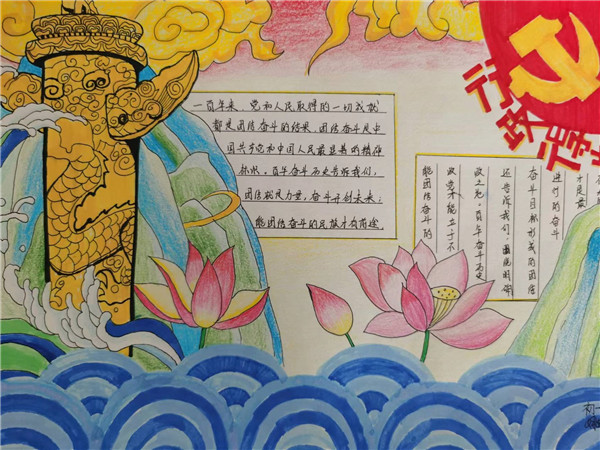 一百年来，党和人民取得的一切成就
都是团结奋斗的结果，团结奋斗是中
国共产党和中国人民最显著的精神
标识，百年奋斗历史告诉我们，
团结就是力量，奋斗开创未来；
能团结奋斗的民族才有前途，
能团结奋斗的
政党才能立于不
败之地。百年奋斗历史
还告诉我们，围绕明确
奋斗目标形成的团结
进行的奋斗
才是最
政
初一